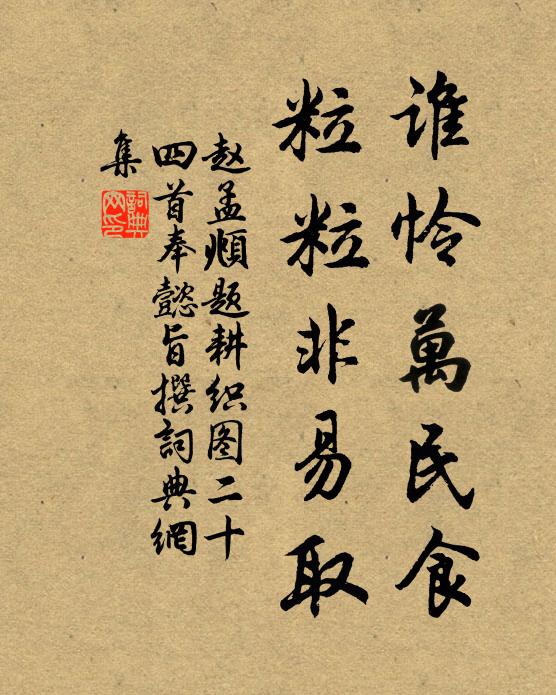 谁怜萬民食
粒粒非易取
赵孟頫题耕织图二十
四首奉懿旨撰詞典網
集
詞典網印